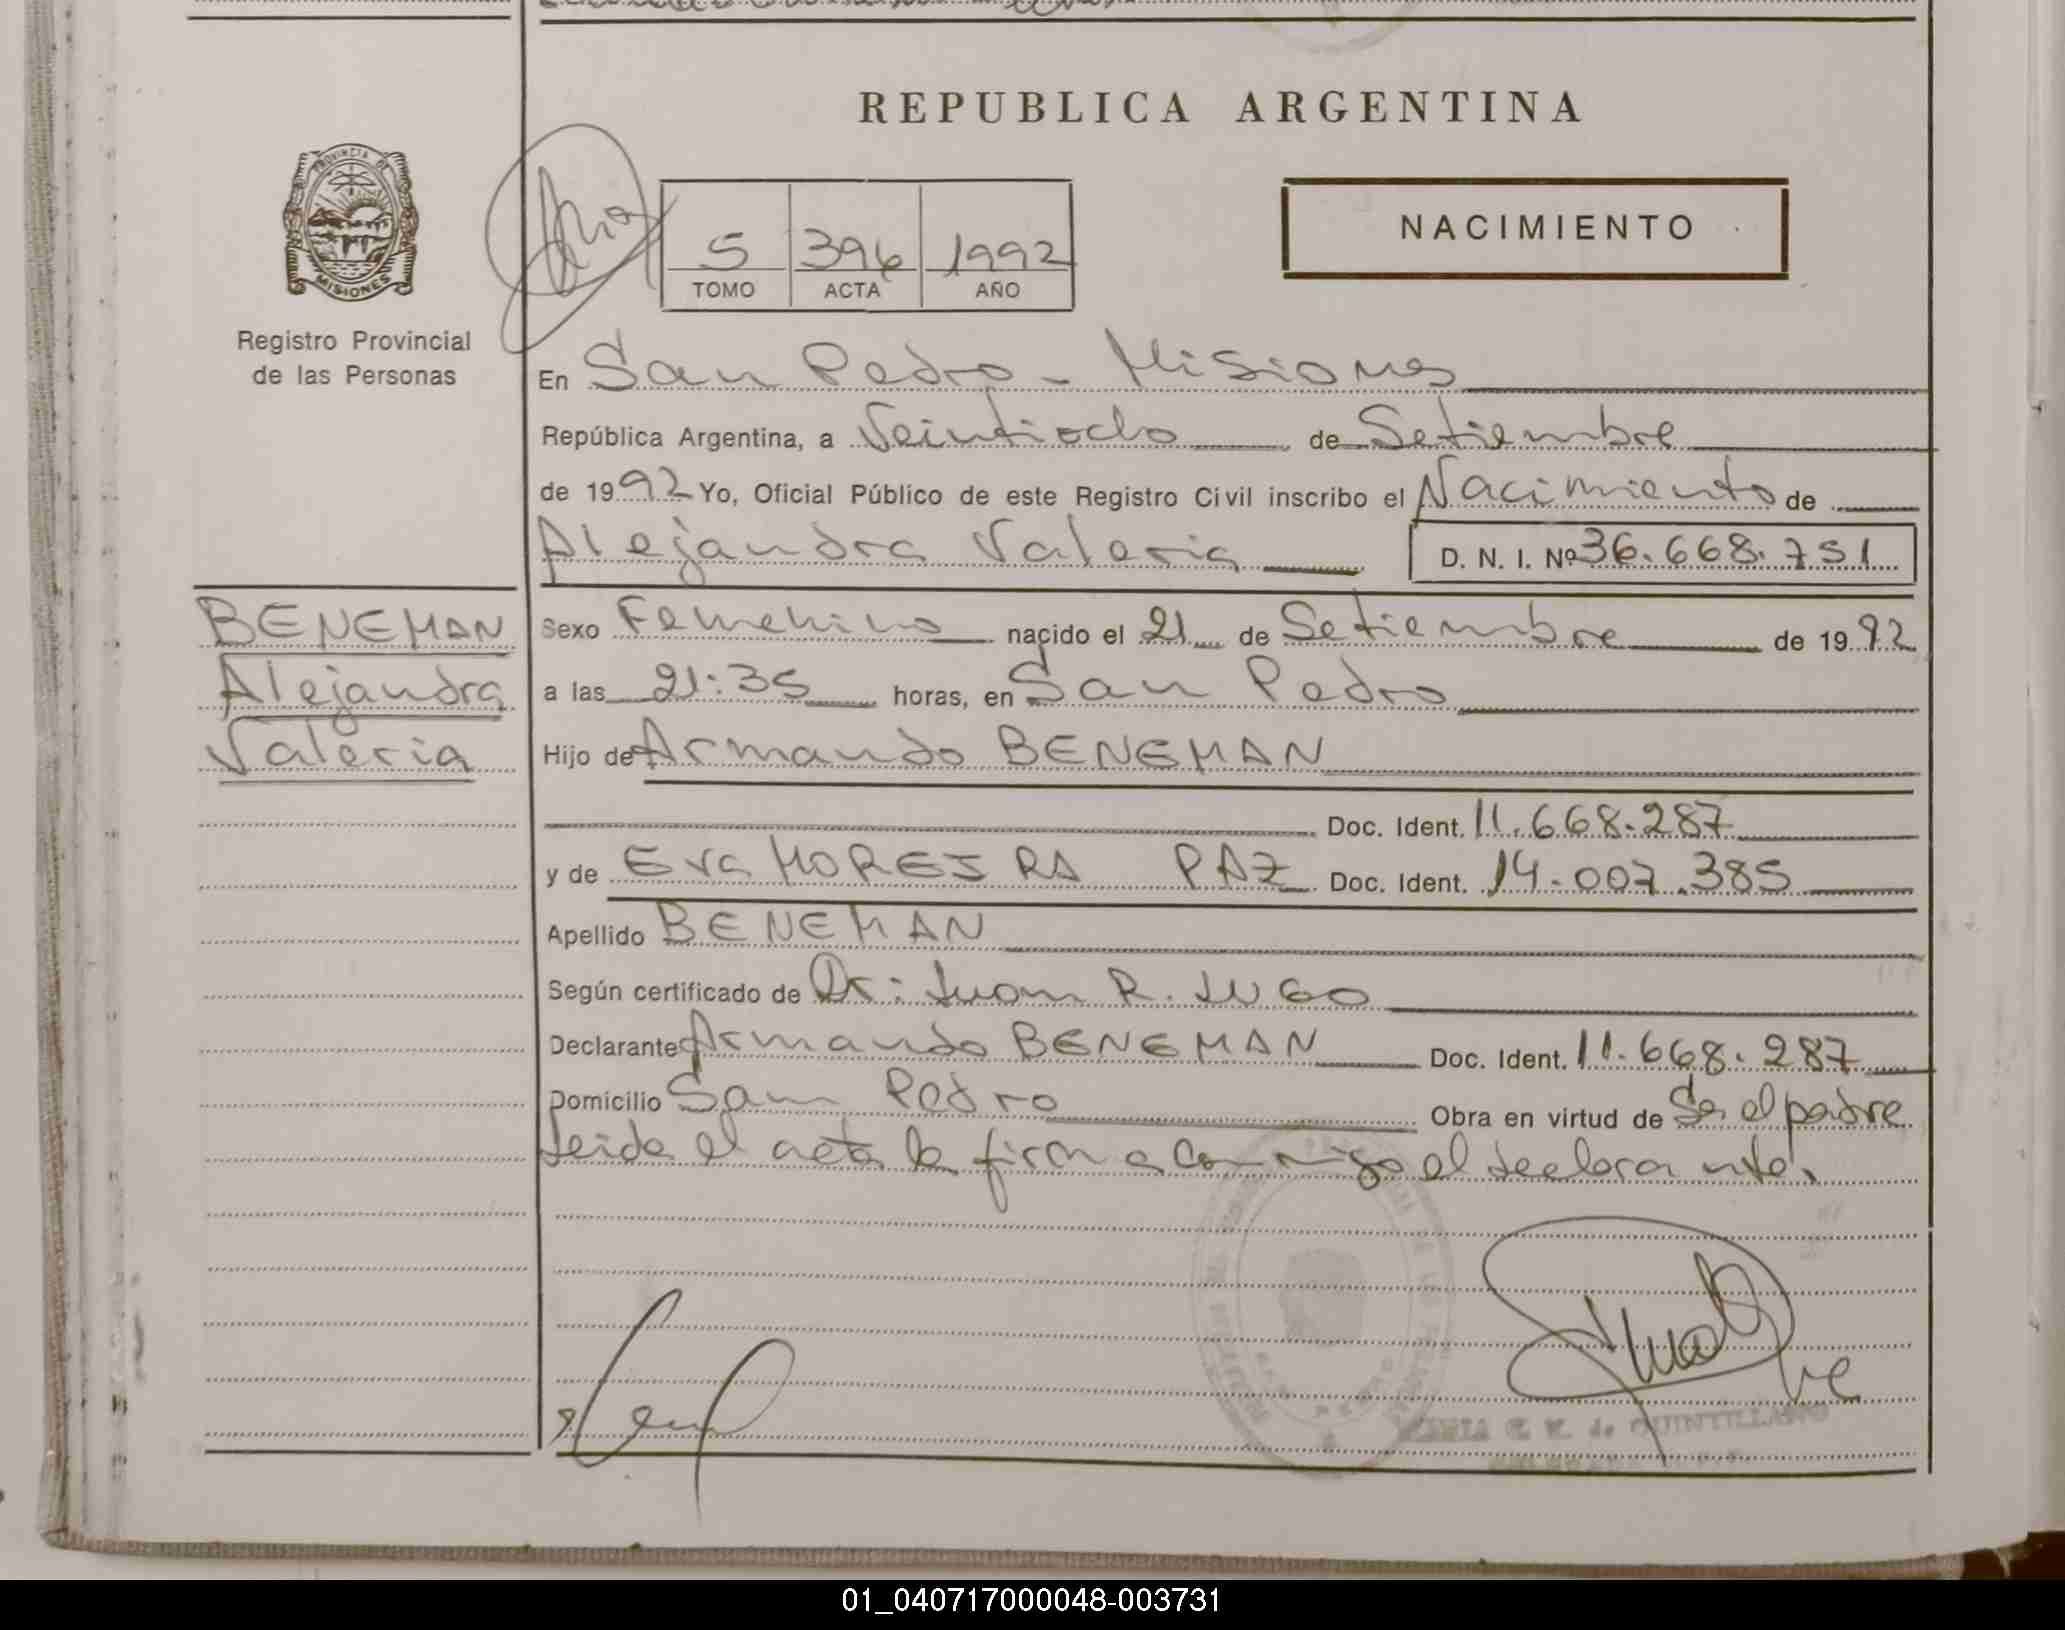 REPUBLICA ARGENTINA
PROVINCIA DE
MISIONES
Registro Provincial
de las Personas
NACIMIENTO
5 396 1992
TOMO ACTA AÑO
En San Pedro - Misiones
República Argentina, a Veintiocho de Setiembre
de 1992 Yo, Oficial Público de este Registro Civil inscribo el Nacimiento de
Alejandra Valeria D. N. I. Nº 36.668.751
BENEMAN
Alejandra
Valeria
Sexo Femenino nacido el 21 de Setiembre de 1992
a las 21:35 horas, en San Pedro
Hijo de Armando BENEMAN
Doc. Ident. 11.668.287
y de Eva MOREIRA PAZ Doc. Ident. 14.007.385
Apellido BENEMAN
Según certificado de Dr: Juan R. LUGO
Declarante Armando BENEMAN Doc. Ident. 11.668.287
Domicilio San Pedro Obra en virtud de Ser el padre
Leida el acta la firma conmigo el declarante.
de QUINTILLANO
01_040717000048-003731